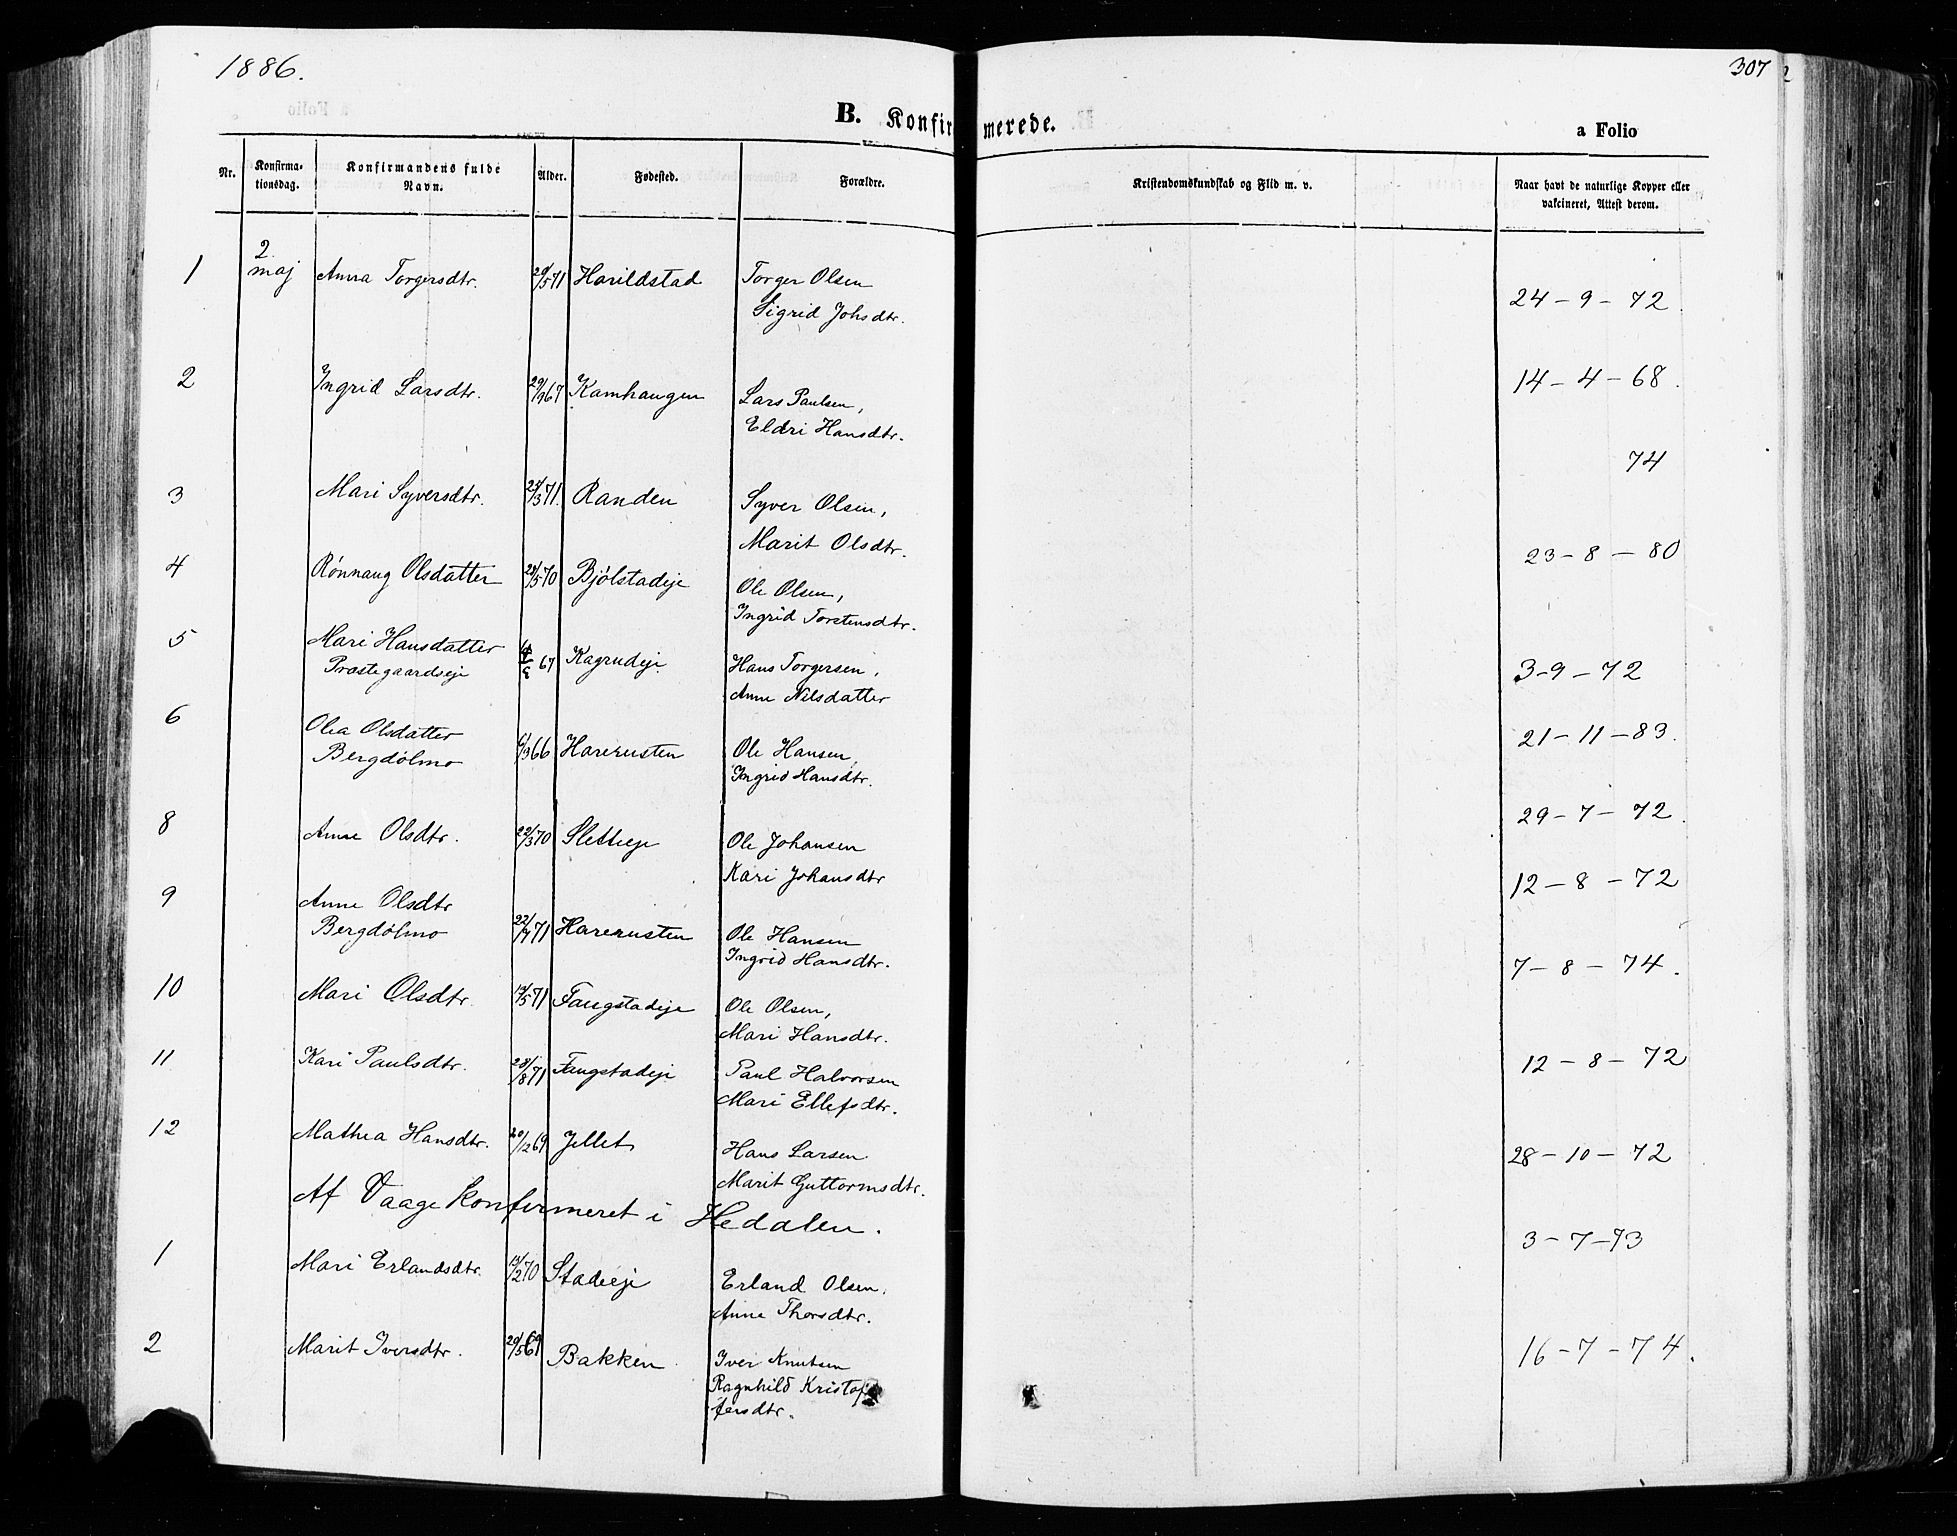 1886.
307
B. Konfirmerede.
a Folio
Nr. Konfirmationsdag. Konfirmandens fulde Navn. Alder. Fødested. Forældre. Kristendomskundskab og Flid m. v. Naar havt de naturlige Kopper eller vakcineret, Attest derom.
1 2 maj Anna Torgersdtr. 29/5 71 Harildstad Torger Olsen
Sigrid Johsdtr.
24-9-72.
2 Ingrid Larsdtr. 29/9 67 Kamhaugen Lars Paulsen,
Eldri Hansdtr.
14-4-68.
3 Mari Syversdtr. 25/3 71. Randen Syver Olsen,
Marit Olsdtr.
74
4 Rønnaug Olsdatter 28/5 70 Bjølstadeje Ole Olsen,
Ingrid Torstensdtr.
23-8-80
5 Mari Hansdatter 67 Kagrudeje Hans Torgersen,
Prostegaardseje Anne Nilsdatter
3-9-72
6 Olea Olsdatter
Bergdølmo 6/3 66 Harerusten Ole Hansen,
Ingrid Hansdtr.
21-11-83.
8 Anne Olsdtr. 22/3 70 Sletteeje Ole Johansen
Kari Johansdtr
29-7-72.
9 Anne Olsdtr
Bergdølmo 22/7 71 Harerusten Ole Hansen
Ingrid Hansdtr.
12-8-72
10 Mari Olsdtr. 19/5 71 Faugstadeje Ole Olsen,
Mari Hansdtr.
7-8-74.
11 Kari Paulsdtr. 28/8 71 Faugstadeje Paul Halvorsen
Mari Ellefsdtr.
12-8-72
12 Mathea Hansdtr. 20/12 69 Jellet Hans Larsen
Marit Guttormsdtr.
28-10-72
Af Vaage konfirmeret i Hedalen.
1 Mari Erlandsdtr. 14/2 70 Stadeeje Erland Olsen,
Anne Thorsdtr.
3-7-73
2 Marit Iversdtr. 29/5 69 Bakken Iver Knutsen
Ragnhild Kristof
fersdtr.
16-7-74.